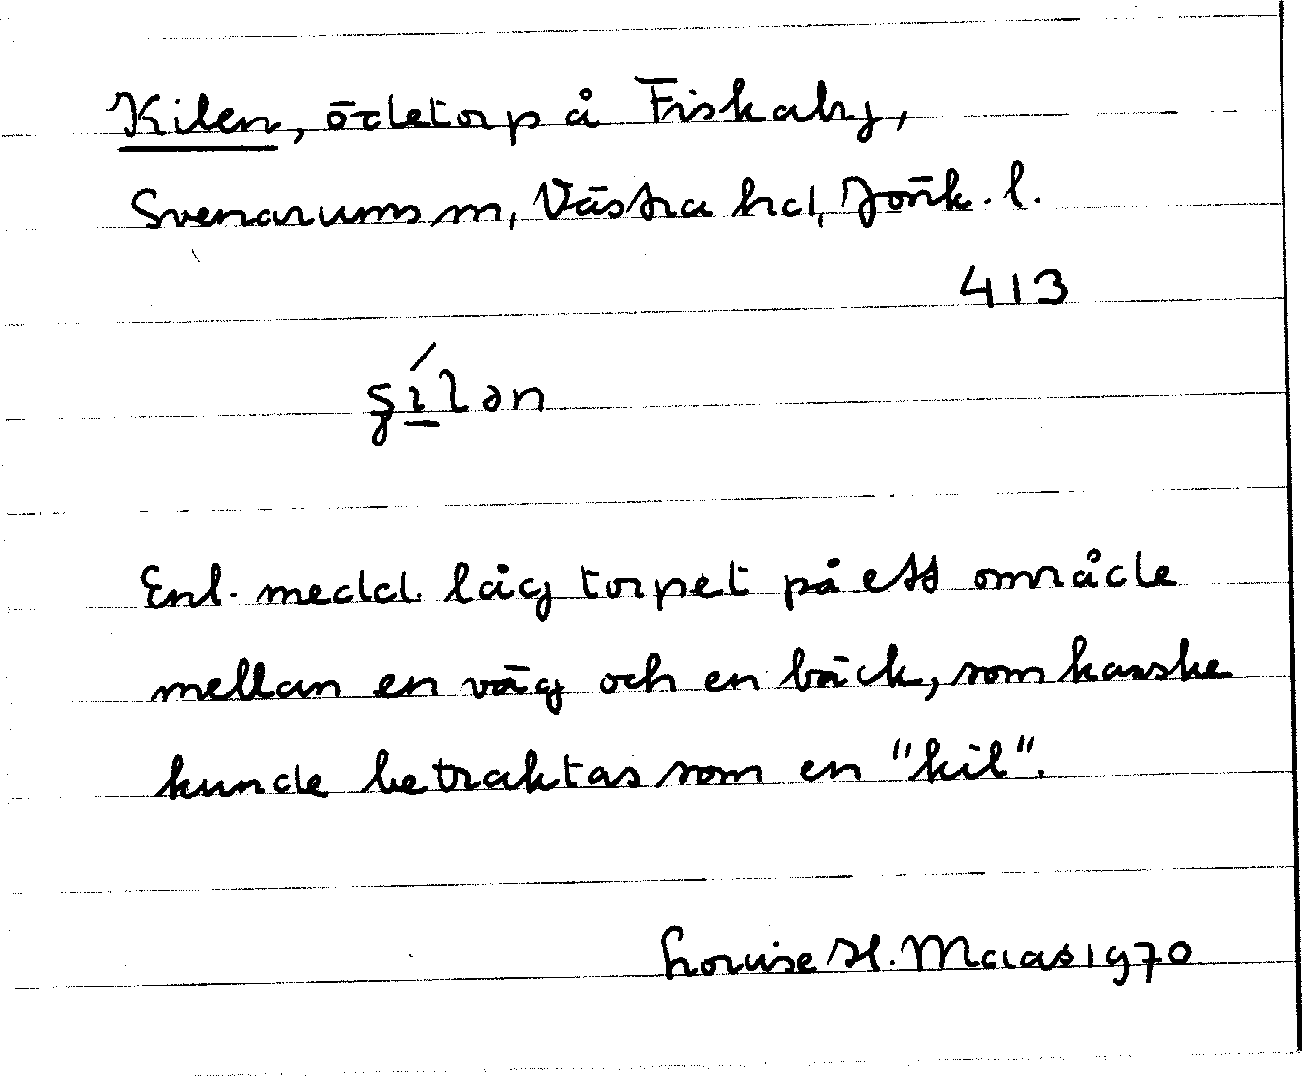 Kilen, ödetorp å Fiskaby,
Svenarums sn, Västra hd, Jönk. l.
413
şílən
Enl. medd. låg torpet på ett område
mellan en väg och en bäck, som kanske
kunde betraktas som en "kil".
Louise H. Maas 1970